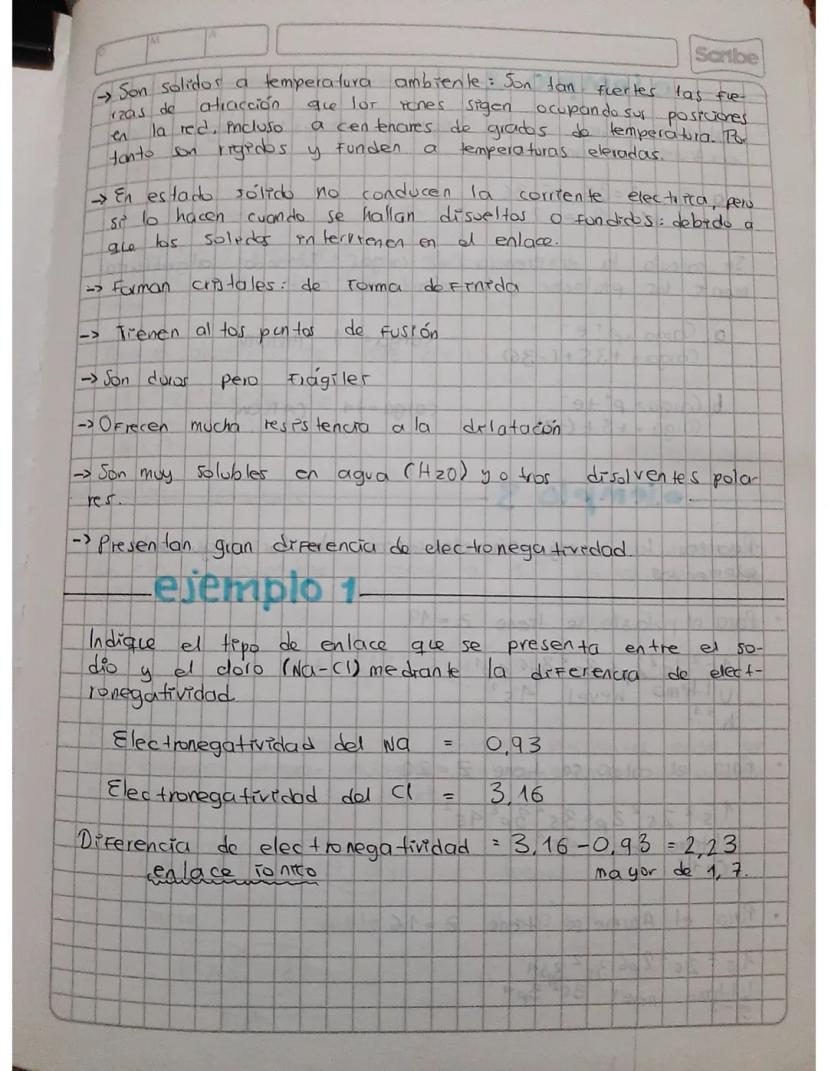 D M A
Scribe
→ Son solidos a temperatura ambiente: Son tan fuertes las fue-
rzas de atracción que los iones sigen ocupando sus posiciones
en la red, incluso a centenares de grados de temperatura. Por
tanto son rigidos y funden a temperaturas elevadas.
→ En estado sólido no conducen la corriente electrica, pero
si lo hacen cuando se hallan disueltos o fundidos: debido a
que los solidos intervienen en el enlace.
→ Forman cristales: de forma definida
→ Tienen altos puntos de fusión
→ Son duros pero frágiles
→ Ofrecen mucha resistencia a la dilatación
→ Son muy solubles en agua (H2O) y otros disolventes pola-
res.
→ Presentan gran diferencia de electronegatividad.
ejemplo 1
Indique el tipo de enlace que se presenta entre el so-
dio y el cloro (Na-Cl) mediante la diferencia de elect-
ronegatividad
Electronegatividad del Na = 0,93
Electronegatividad del Cl = 3,16
Diferencia de electronegatividad = 3,16-0,93 = 2,23
enlace ionico mayor de 1,7.